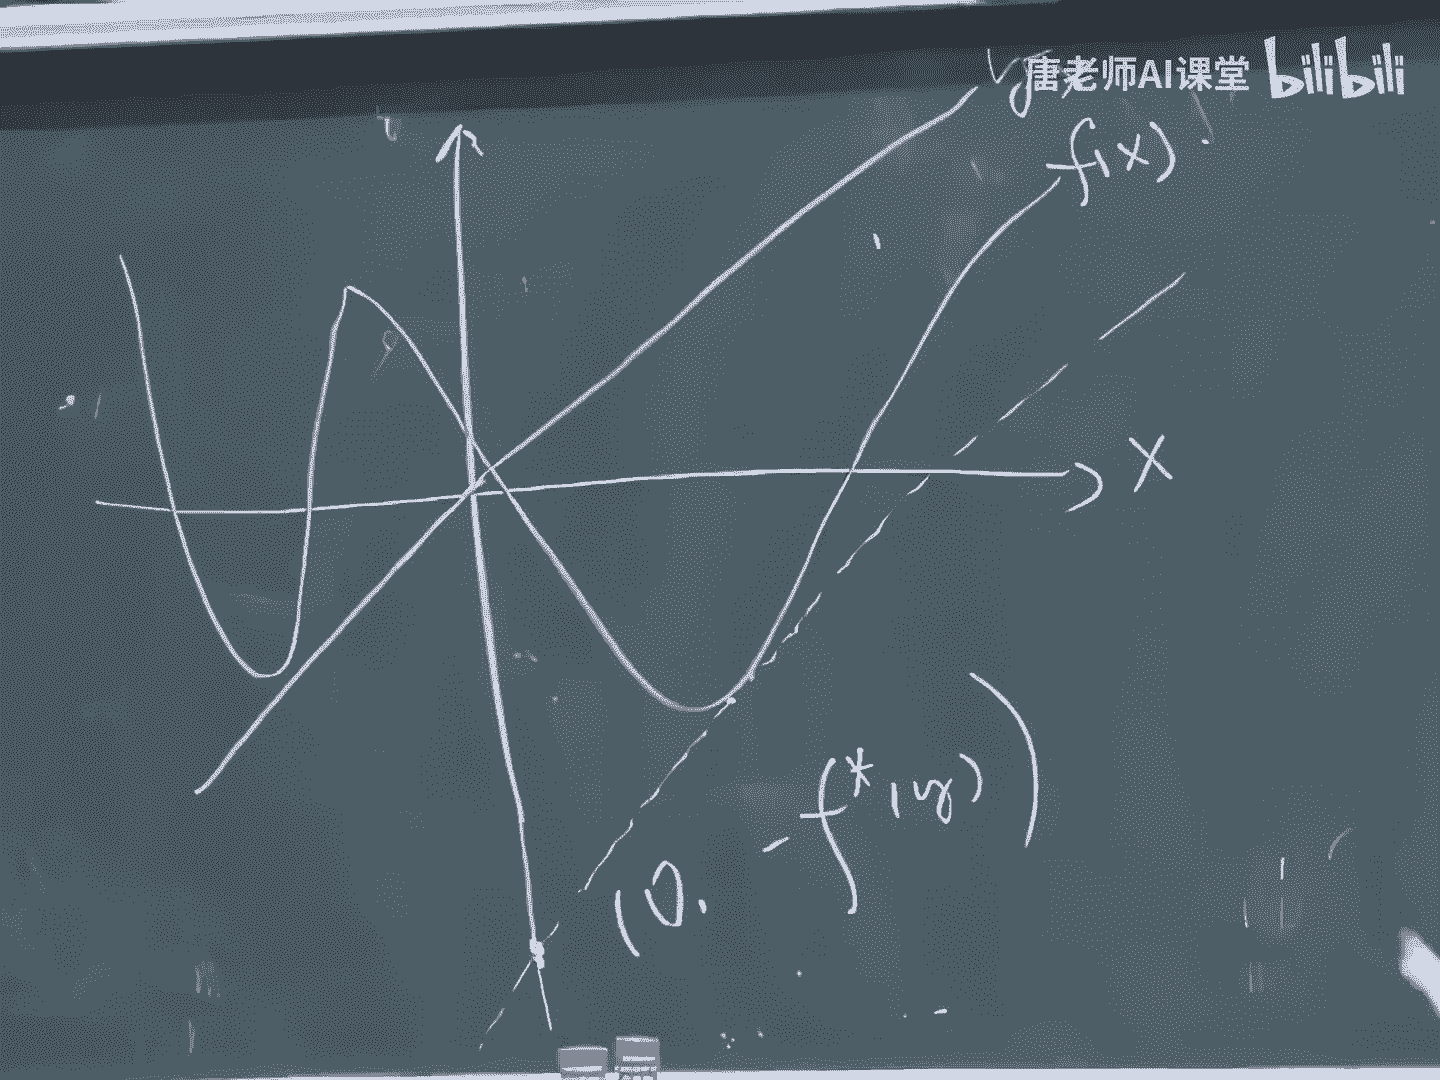 唐老师AI课堂 bilibili
f(x)
x
(0, -f*(y))